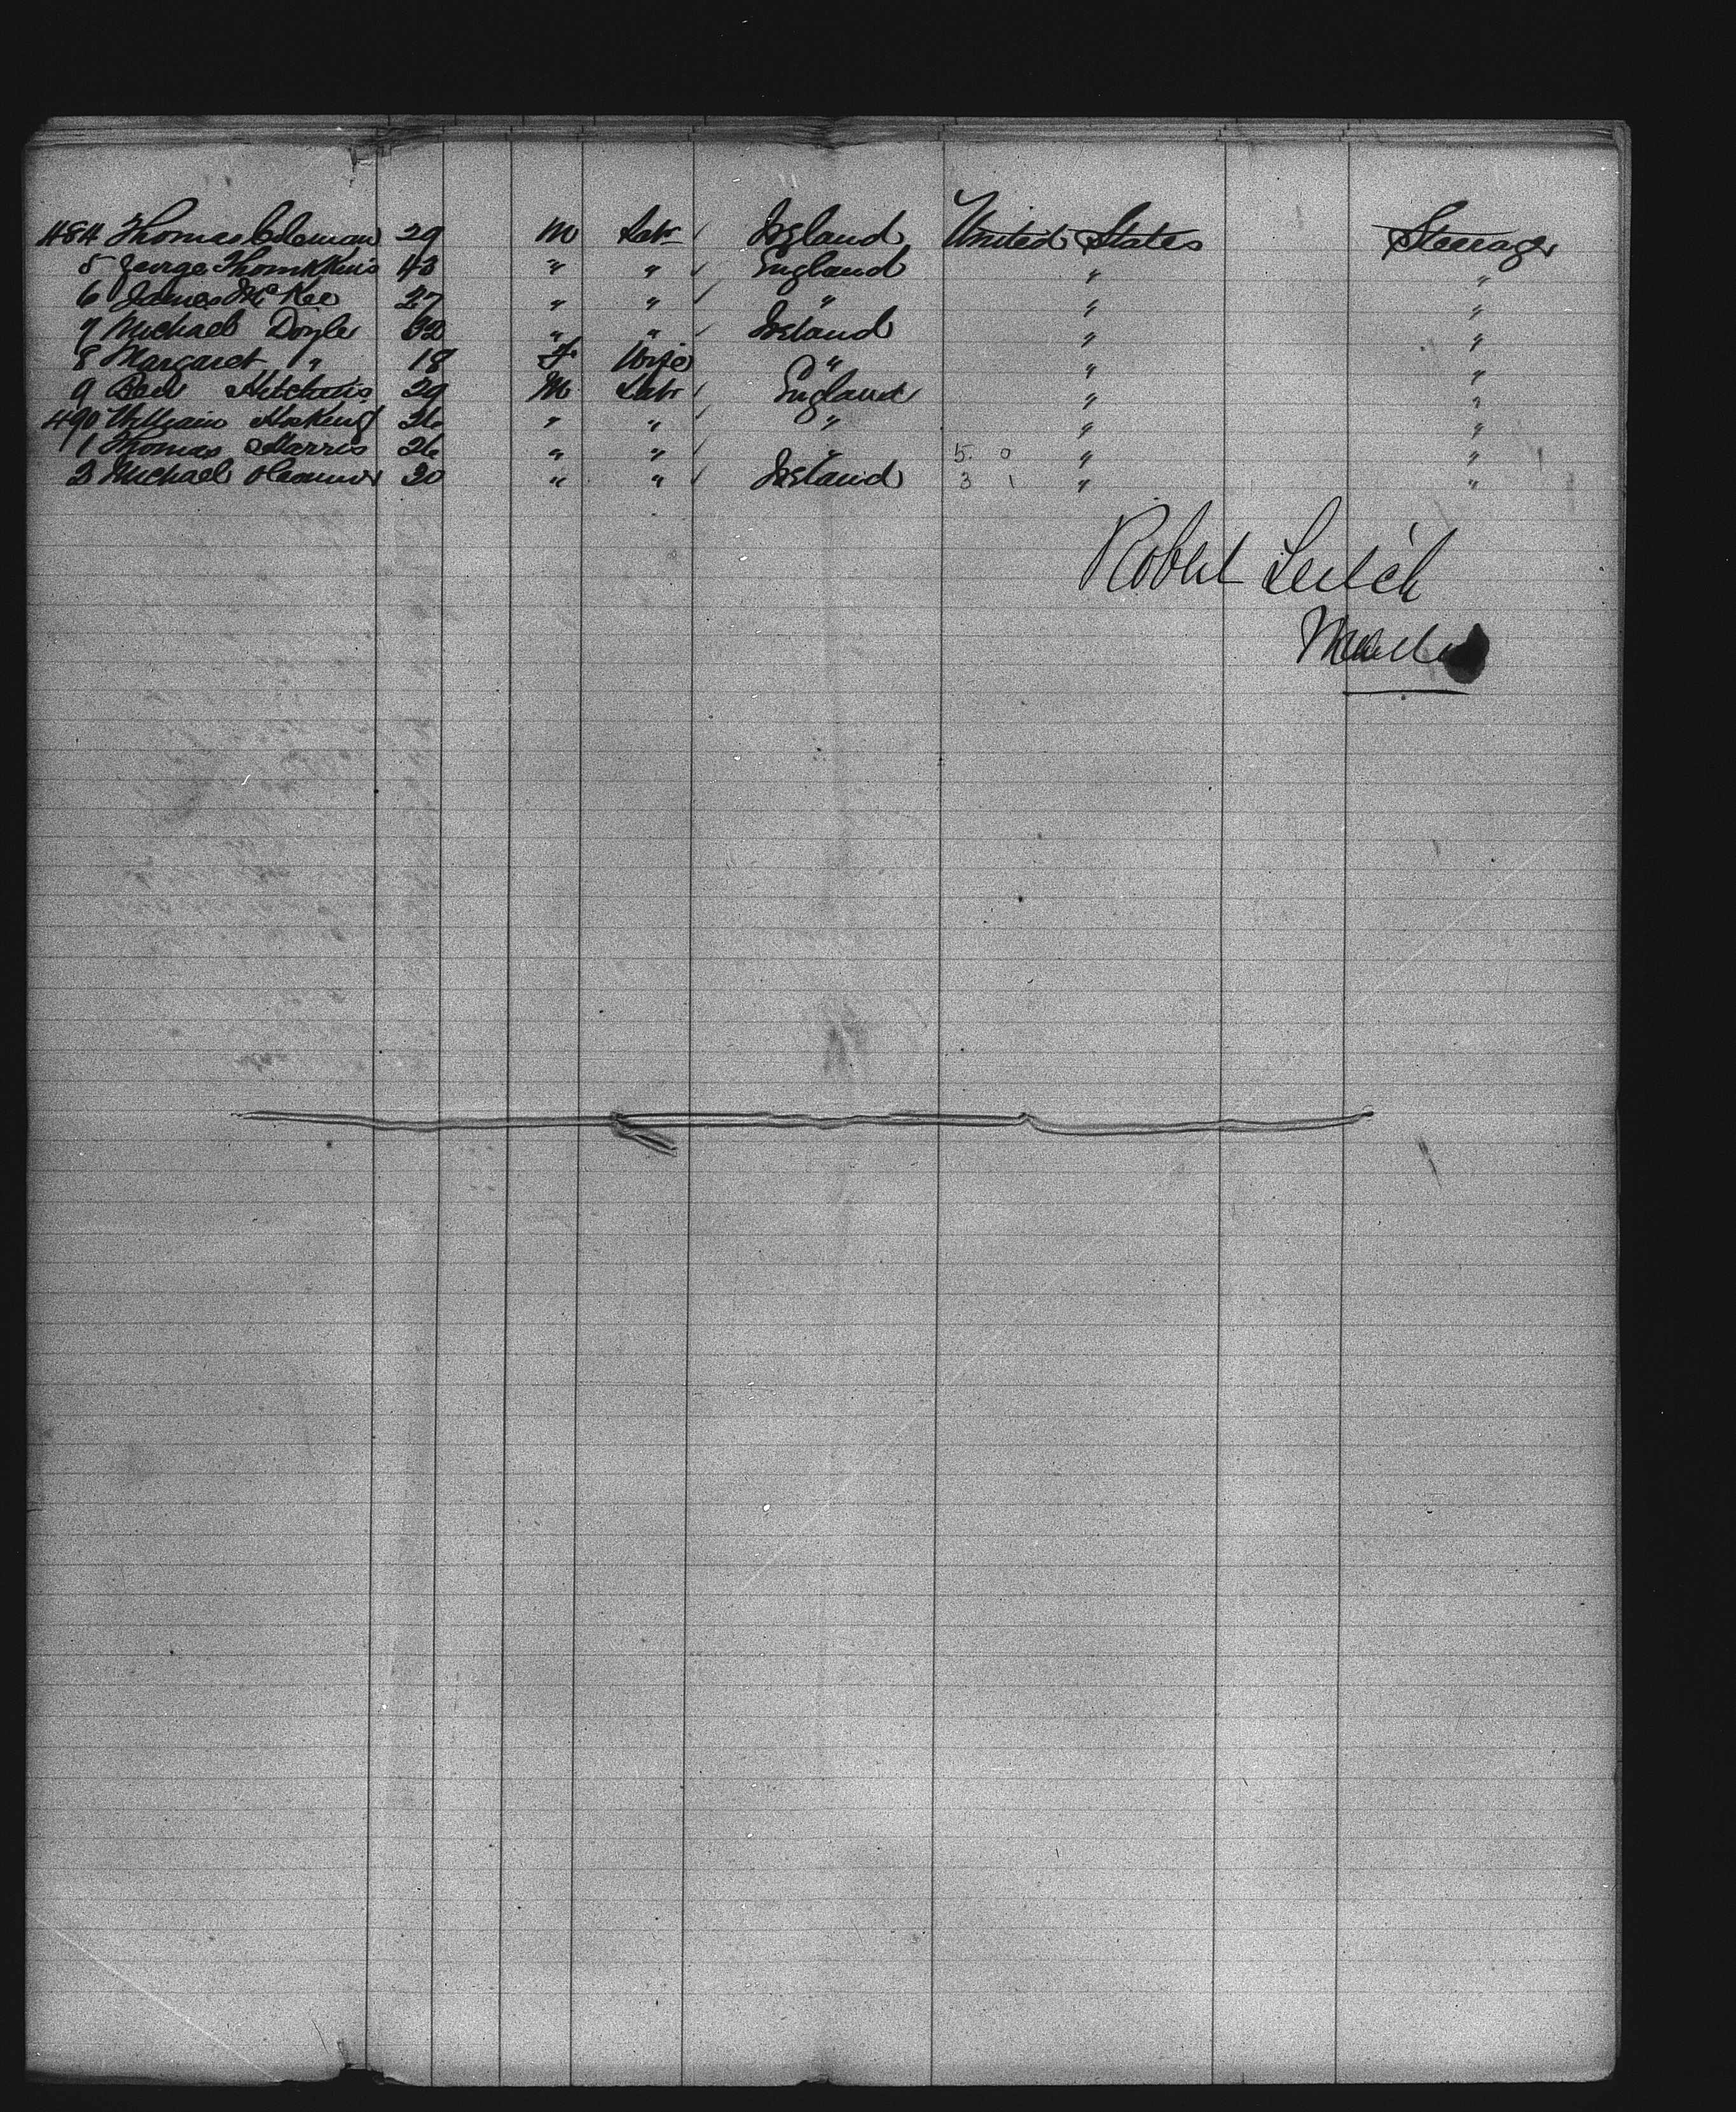 484 Thomas Coleman 29 M Labr ✓ Ireland United States Steerage
5 George Thomkins 43 " " ✓ England " "
6 James McKee 27 " " ✓ " " "
7 Michael Doyle 32 " " ✓ Ireland " "
8 Margaret " 18 F Wife " " "
9 Hitchins 29 M Labr ✓ England " "
490 William Hosking 26 " " ✓ " " "
1 Thomas Harris 26 " " ✓ " 5. 0 " "
2 Michael 20 " " ✓ Ireland 3 1 " "
Robert Leitch
Master